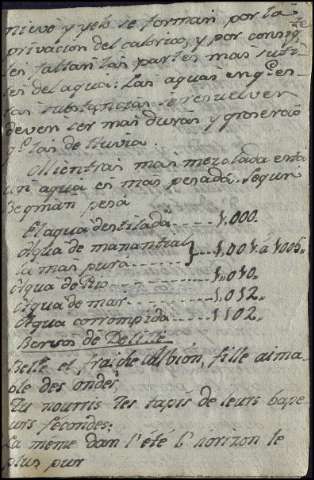 nieve y yelo se forman por la
privacion del calorico, y por consigte
les faltan las partes mas suti-
les del agua: Las aguas en qe es-
tas substancias se resuelven
deven ser mas duras y groseras
qe las de lluvia.
Mientras mas mezclada está
un agua es mas pesada. Segun
Begman pesa
El agua destilada 1.000.
Agua de manantial
la mas pura 1.001. á 1005.
Agua de Rio 1.010.
Agua de mar 1.012.
Agua corrompida 1102.
Bersos de Delille
Belle et fraiche Albion, fille aima
ble des ondes,
Tu nourris tes tapis de leurs bape
urs fécondes:
La même dans l'été l'horizon le
plus pur